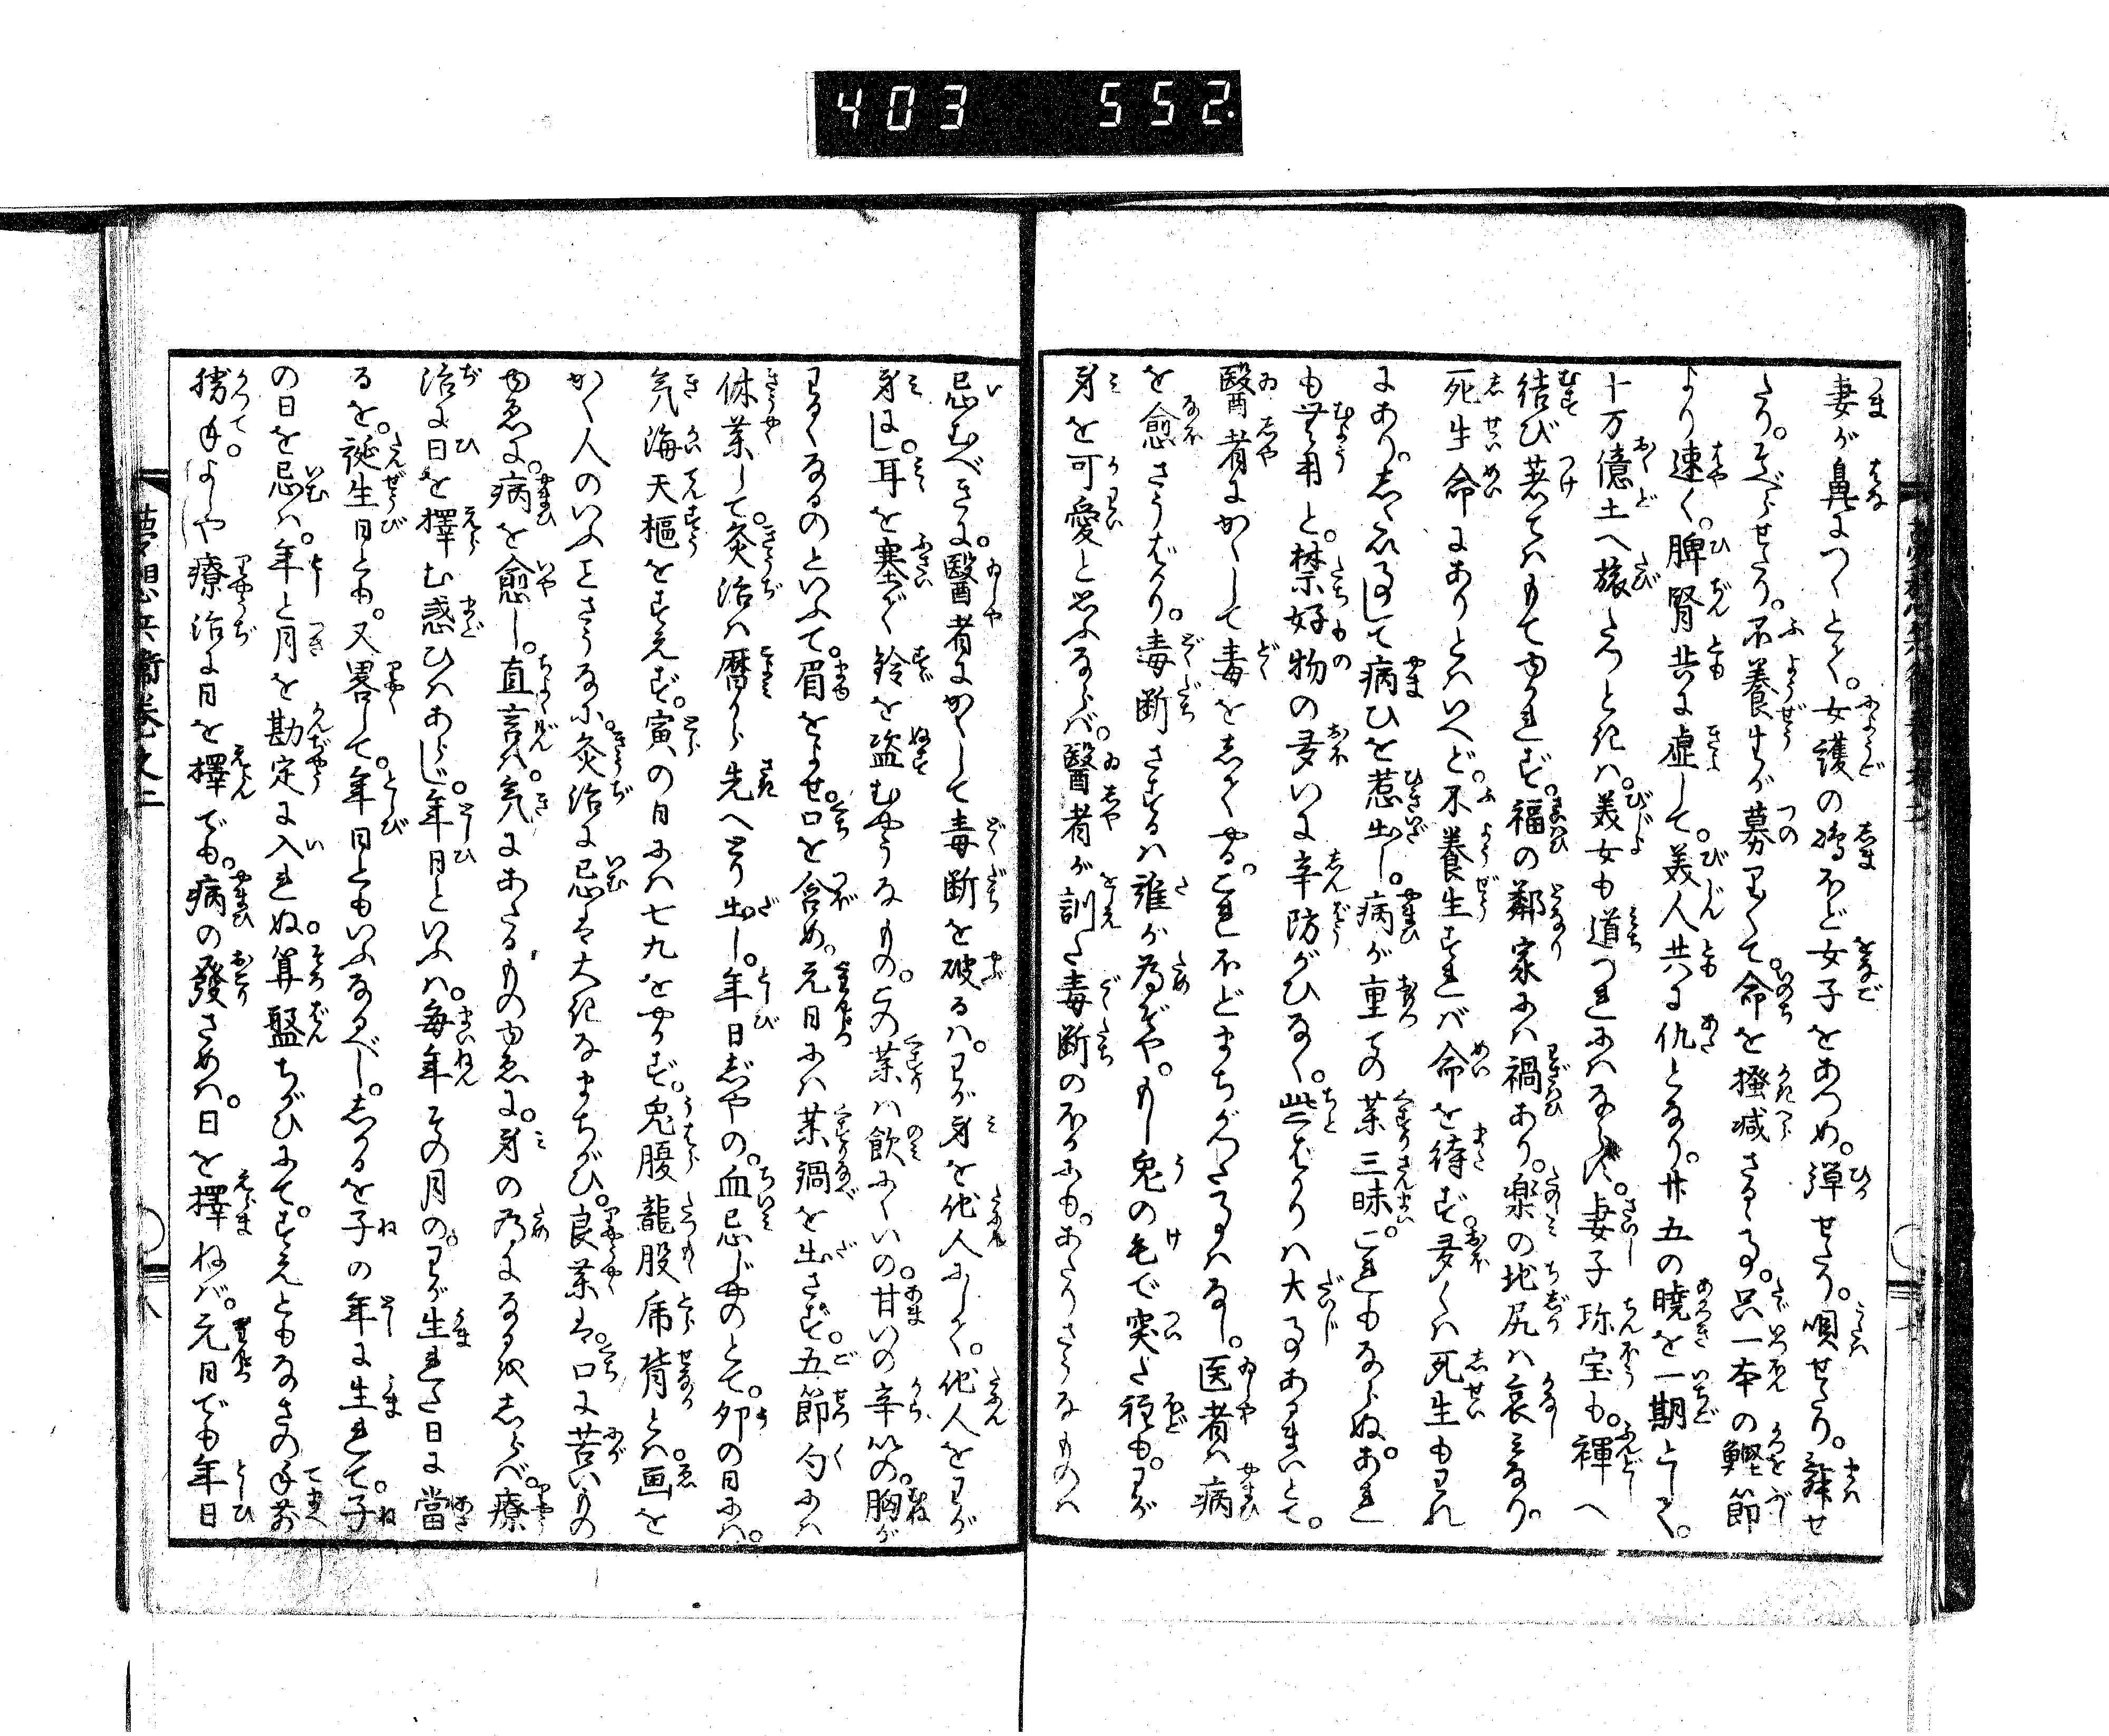 403 552.
妻が鼻につくとて。女護の嶋ほど女子をあつめ。弾せたり。唄せたり。舞せ
たり。そべらせたり。不養生が募りて。命を掻減さるゝ事。只一本の鰹節
より速く。脾腎共に虚して。美人共に仇となり。廿五の暁を一期として。
十万億土へ旅たつときは。美女も道つれにはならず。妻子珍宝も。褌へ
結び着てはもてゆかれず。福の鄰家には禍あり。楽の地尻は哀みなり。
死生命にありとはいへど。不養生すれバ命を待ず。多くは死生もわれ
にあり。しかるして病ひを惹出し。病が重ての薬三昧。これもならぬ。あれ
も無用と。禁好物の多いに辛防がひなく。些ばかりは大事あるまいとて。
醫者にかくして毒をしてやる。これほどまちがつたるはなし。医者は病
を愈さうばかり。毒断さするは誰が為ぞや。もし兎の毛で突た程も。わが
身を可愛と思ふならバ。醫者が訓た毒断のほかにも。あたりさうなものは
忌むべきに。醫者にかくして毒断を破るは。わが身を他人にして。他人をわが
身にし。耳を塞で鈴を盗むやうなもの。との薬は飲にくいの。甘いの辛いの。胸が
わるくなるのといふて。眉をよせ。口を含め。元日には薬鍋を出さず。五節句には
休薬して。灸治は暦から先へくり出し。年日じやの。血忌じやのとて。卯の日には。
気海天樞をすえず。寅の日には七九をやらず。兎腹龍股乕背とは画を
かく人のいふことさうなに。灸治に忌は大きなまちがひ。良薬は。口に苦いもの
ゆゑに。病を愈し。直言は。気にあたるものゆゑに。身の為になるはしらべ。療
治に日を擇む惑ひはあらじ。年日といふは。毎年その月の。わが生れた日に當
るを。誕生日とも。又畧して。年日ともいふなるべし。しかるを子の年に生れて。子
の日を忌は。年と月を勘定に入れぬ。算盤ちがひにて。すえともなさの手前
勝手。よしや療治に日を擇でも。病の發さめは。日を擇ねバ。元日でも年日
夢想兵衛巻之二
八